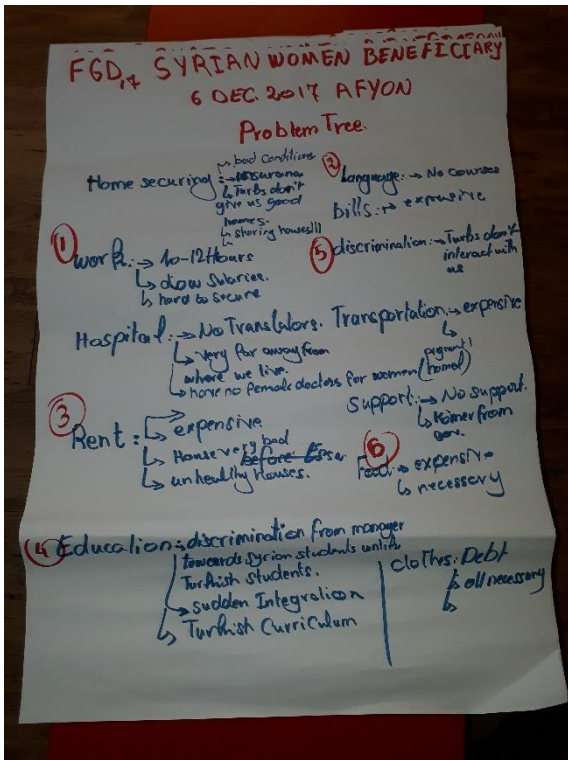 FGD,17 SYRIAN WOMEN BENEFICIARY
6 DEC. 2017 AFYON
Problem Tree.
Home securing :
bad conditions
Turks don't
give us good
homes.
sharing houses!!!
② Language: → No courses
bills: → expensive
① Work: → 10-12 Hours
Low Salaries.
hard to secure
⑤ discrimination: → Turks don't
interact with
us
Hospital: → No Translators.
Very far away from
where we live.
have no female doctors for women (pregnant!
Transportation → expensive
Support: → No support.
from
gov.
③ Rent:
expensive
House very bad
before
unhealthy Houses.
⑥ Food → expensive
necessary
④ Education: discrimination from manager
towards Syrian students unlike
Turkish students.
sudden Integration
Turkish Curriculum
Clothrs: Debt
all necessary